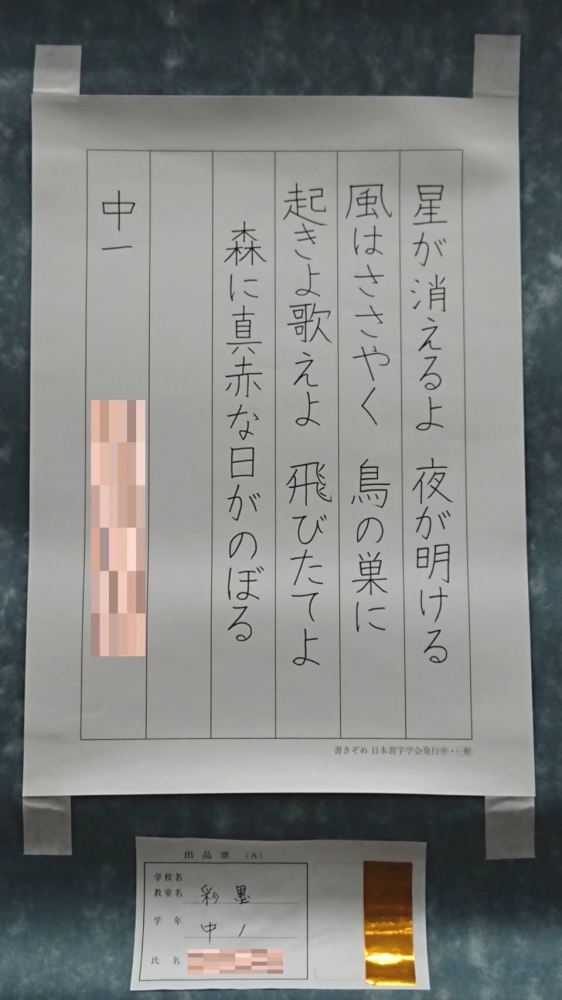 星が消えるよ 夜が明ける
風はささやく 鳥の巣に
起きよ歌えよ 飛びたてよ
森に真赤な日がのぼる
中一
書きぞめ 日本習字学会発行
出品票 (A)
学校名
教室名 彩墨
学年 中1
氏名